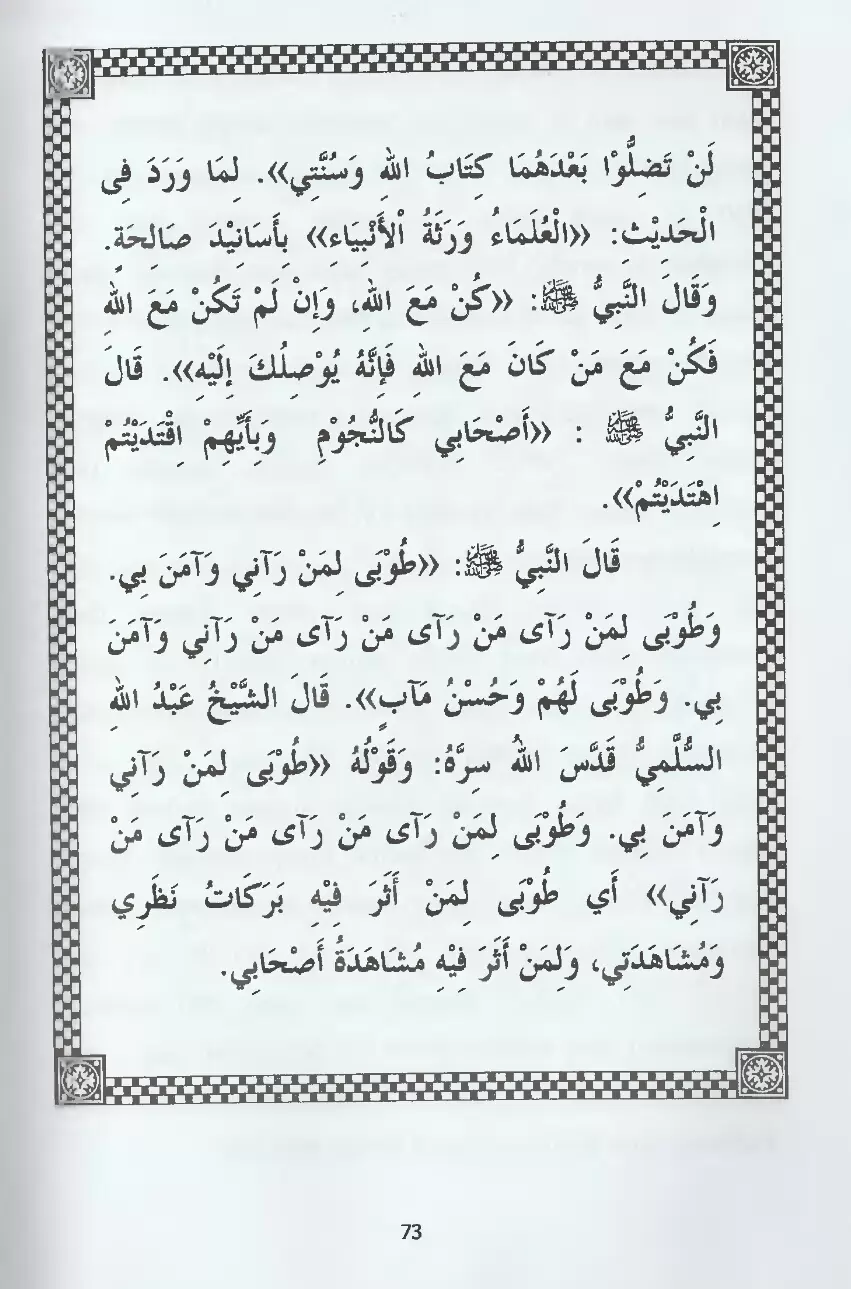 لَنْ تَضِلُّوْا بَعْدَهُمَا كِتَابُ اللهِ وَسُنَّتِي». لِمَا وَرَدَ فِى
الْحَدِيْثِ: «الْعُلَمَاءُ وَرَثَةُ الْأَنْبِيَاءِ» بِأَسَانِيْدَ صَالِحَةٍ.
وَقَالَ النَّبِيُّ ﷺ: «كُنْ مَعَ اللهِ، وَإِنْ لَمْ تَكُنْ مَعَ اللهِ
فَكُنْ مَعَ مَنْ كَانَ مَعَ اللهِ فَإِنَّهُ يُوْصِلُكَ إِلَيْهِ». قَالَ
النَّبِيُّ ﷺ : «أَصْحَابِي كَالنُّجُوْمِ وَبِأَيِّهِمْ اِقْتَدَيْتُمْ
اِهْتَدَيْتُمْ».
قَالَ النَّبِيُّ ﷺ: «طُوْبَى لِمَنْ رَآنِي وَآمَنَ بِي.
وَطُوْبَى لِمَنْ رَآى مَنْ رَآى مَنْ رَآى مَنْ رَآنِي وَآمَنَ
بِي. وَطُوْبَى لَهُمْ وَحُسْنُ مَآبٍ». قَالَ الشَّيْخُ عَبْدُ اللهِ
السُّلَّمِيُّ قَدَّسَ اللهُ سِرَّهُ: وَقَوْلُهُ «طُوْبَى لِمَنْ رَآنِي
وَآمَنَ بِي. وَطُوْبَى لِمَنْ رَآى مَنْ رَآى مَنْ رَآى مَنْ
رَآنِي» أَي طُوْبَى لِمَنْ أَثَرَ فِيْهِ بَرَكَاتُ نَظَرِي
وَمُشَاهَدَتِي، وَلِمَنْ أَثَرَ فِيْهِ مُشَاهَدَةُ أَصْحَابِي.
73